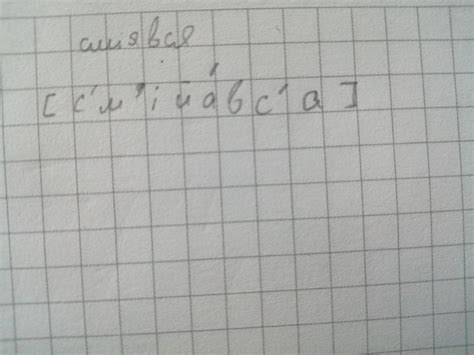 сміявся
[с'м'ійа́вс'а]